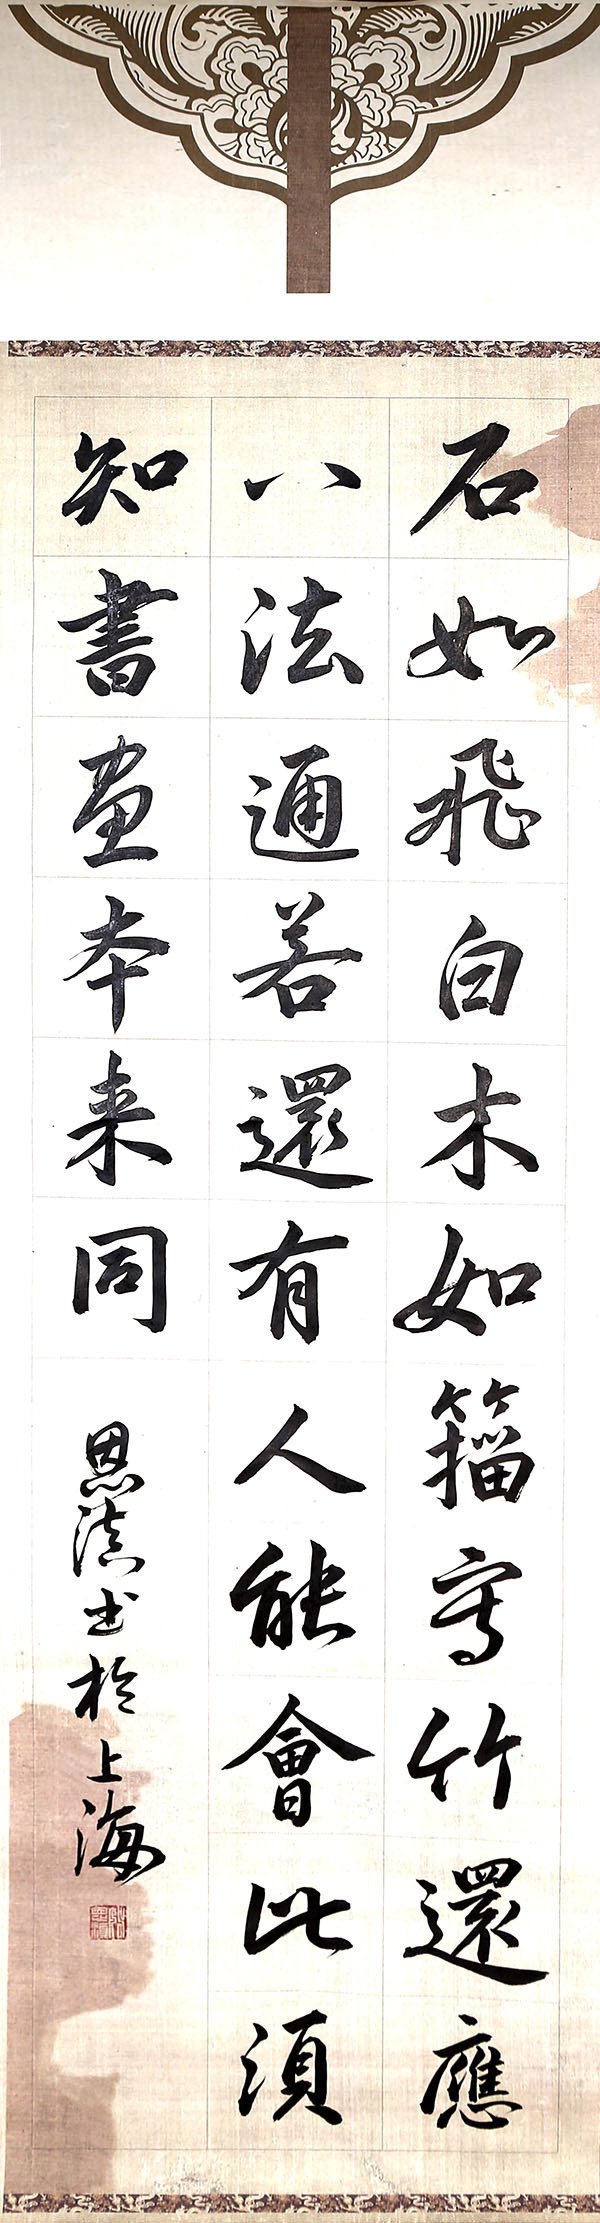 石如飛白木如籀寫竹還應
八法通若還有人能會此須
知書画本来同
恩滇书於上海